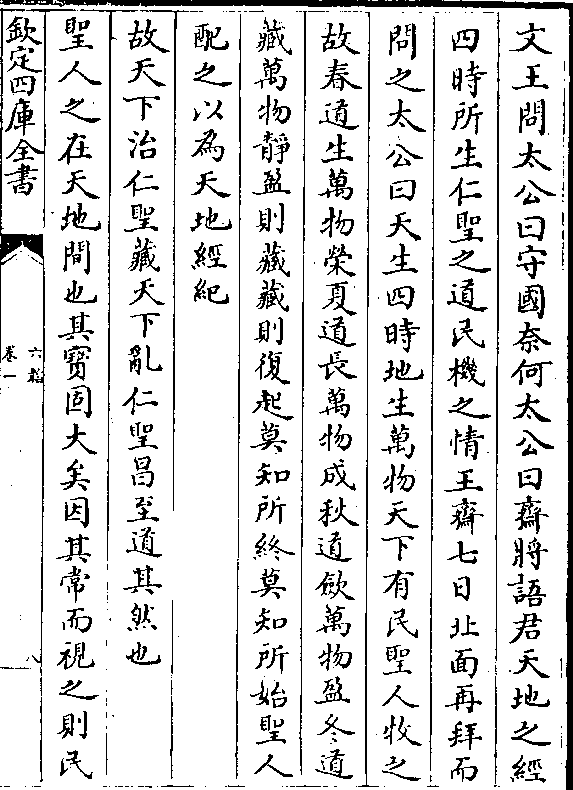 文王問太公曰守國奈何太公曰齋將語君天地之經
四時所生仁聖之道民機之情王齋七日北面再拜而
問之太公曰天生四時地生萬物天下有民聖人牧之
故春道生萬物榮夏道長萬物成秋道斂萬物盈冬道
藏萬物靜盈則藏藏則復起莫知所終莫知所始聖人
配之以為天地經紀
故天下治仁聖藏天下亂仁聖昌至道其然也
聖人之在天地間也其寶固大矣因其常而視之則民
欽定四庫全書
六韜
卷一
八